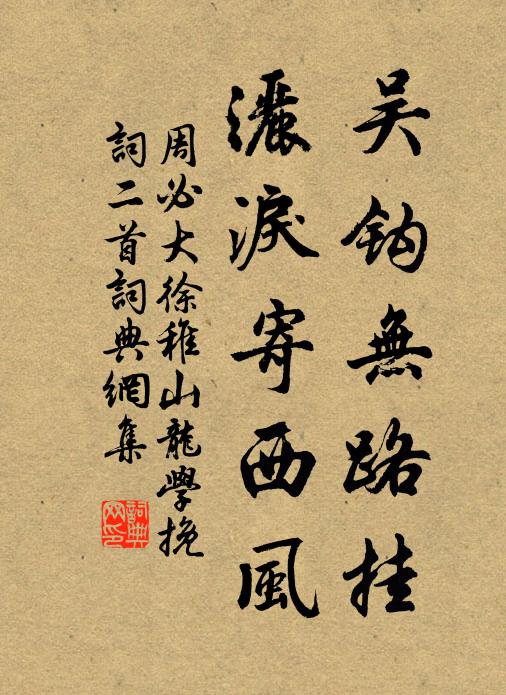 吴鈎無路挂
灑淚寄西風
周必大徐稚山龍學挽
詞二首詞典網集
詞典
网印